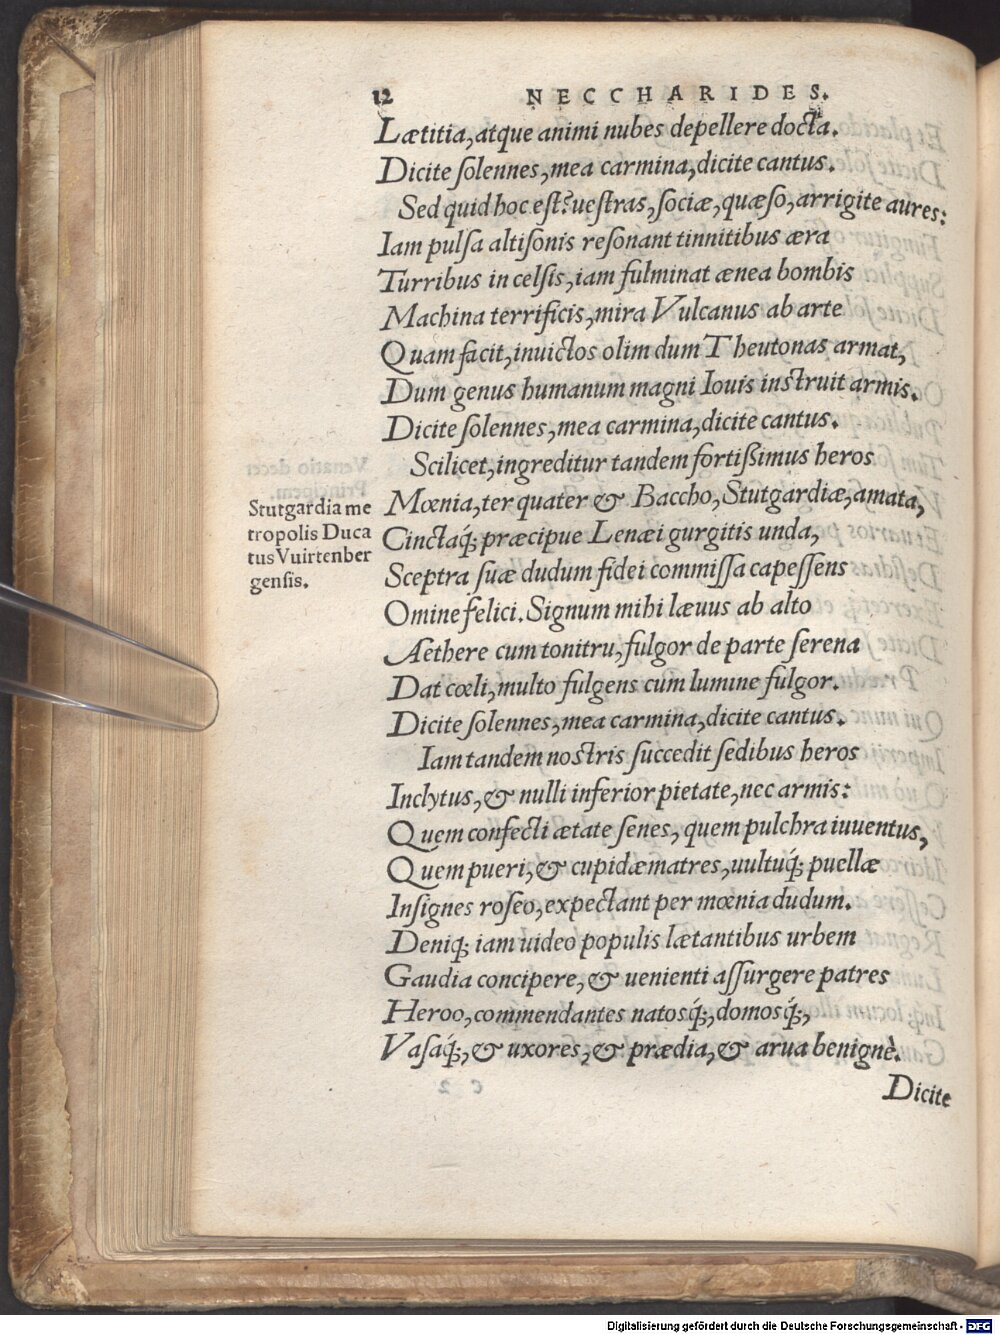 12 NECCHARIDES.
Lætitia, atque animi nubes depellere docta.
Dicite ſolennes, mea carmina, dicite cantus.
Sed quid hoc est? ueſtras, ſociæ, quæſo, arrigite aures:
Iam pulſa altiſonis reſonant tinnitibus æra
Turribus in celſis, iam fulminat ænea bombis
Machina terrificis, mira Vulcanus ab arte
Quam facit, inuictos olim dum Theutonas armat,
Dum genus humanum magni Iouis instruit armis.
Dicite ſolennes, mea carmina, dicite cantus.
Scilicet, ingreditur tandem fortißimus heros
Mœnia, ter quater & Baccho, Stutgardiæ, amata,
Cinctaq́; præcipue Lenæi gurgitis unda,
Sceptra ſuæ dudum fidei commiſſa capeſſens
Omine felici. Signum mihi læuus ab alto
Aethere cum tonitru, fulgor de parte ſerena
Dat cœli, multo fulgens cum lumine fulgor.
Dicite ſolennes, mea carmina, dicite cantus.
Iam tandem nostris ſuccedit ſedibus heros
Inclytus, & nulli inferior pietate, nec armis:
Quem confecti ætate ſenes, quem pulchra iuuentus,
Quem pueri, & cupidæ matres, uultuq́; puellæ
Inſignes roſeo, expectant per mœnia dudum.
Deniq; iam uideo populis lætantibus urbem
Gaudia concipere, & uenienti aſſurgere patres
Heroo, commendantes natosq́;, domosq́;,
Vaſaq́;, & uxores, & prædia, & arua benignè.
Dicite
Stutgardia me
tropolis Duca
tus Vuirtenber
genſis.
Digitalisierung gefördert durch die Deutsche Forschungsgemeinschaft - DFG